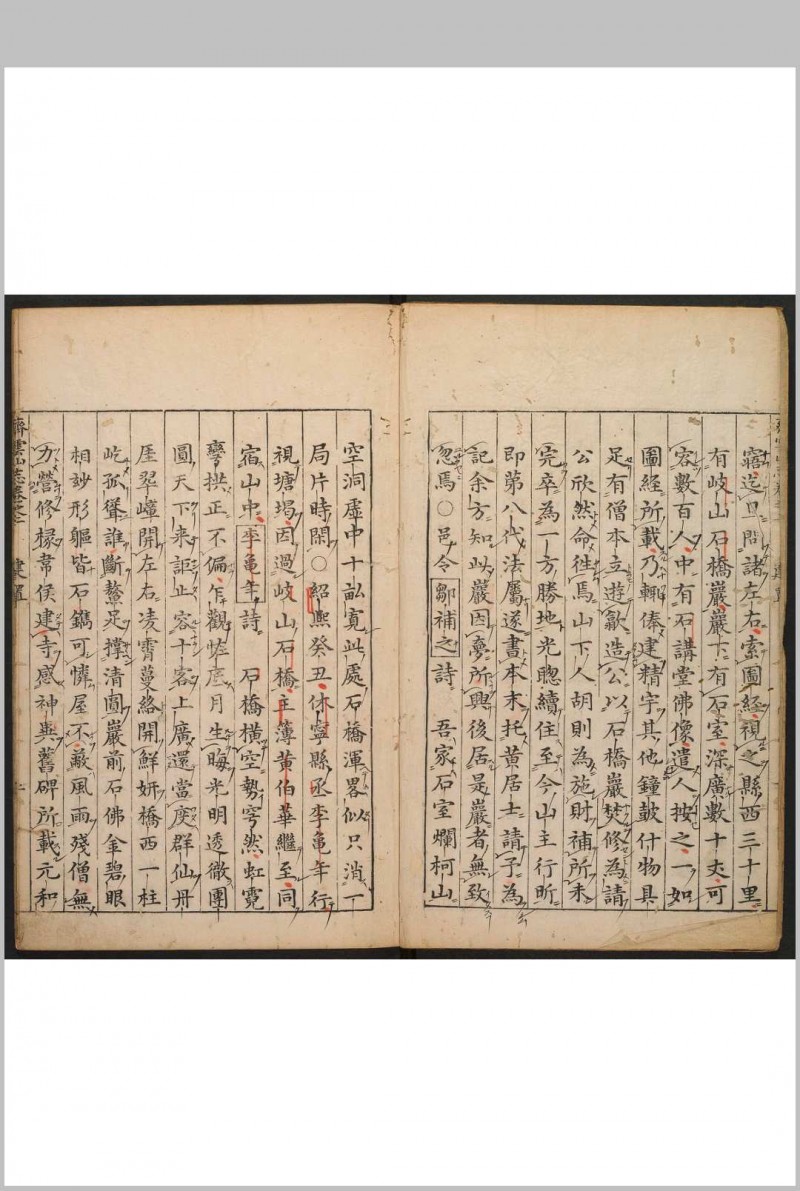 寤迄旦問諸左右索圖經視之縣西三十里
有岐山石橋巖巖下有石室深廣數十丈可
容數百人中有石講堂佛像遣人按之一如
圖經所載乃輙俸建精宇其他鐘鼓什物具
足有僧本立遊歙造公以石橋巖焚修為請
公欣然命徃焉山下人胡則為施財補所未
完卒為一方勝地光聰續住至今山主行昕
即第八代法屬遂書本末托黃居士請予為
記余方知此巖因夢所興後居是巖者無致
忽焉○邑令鄒補之詩 吾家石室爛柯山
空洞虛中十畝寬此處石橋渾畧似只消一
局片時閑○紹熙癸丑休寧縣丞李亀年行
視塘堨因過岐山石橋主簿黃伯華繼至同
宿山中李亀年詩 石橋橫空勢穹然虹霓
彎拱正不偏乍觀恠底月生晦光明透徹團
圓天下来詎止容十客上廣還當度群仙丹
崖翠巘開左右凌霄蔓絡開鮮妍橋西一柱
屹孤聳誰斷鰲足撐清圓巖前石佛金碧眼
相玅形軀皆石鐫可憐屋不蔽風雨殘僧無
力營修椽韋侯建寺感神興舊碑所載元和
齊雲山志卷之 建置